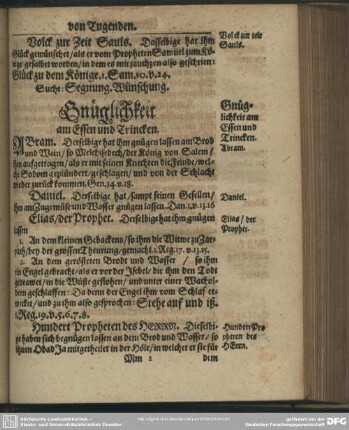 von Tugenden.
Volck zur Zeit Sauls. Dasselbige hat ihm
Glück gewünschet / als er vom Propheten Samuel zum Kö-
nige gesalbet worden / in dem es mit jauchzen also geschrien:
Glück zu dem Könige. 1. Sam. 10. v. 24.
Suche: Segnung. Wünschung.
Volck zur zeit
Sauls.
Gnüglichkeit
am Essen und Trincken.
ABram. Derselbige hat ihm gnügen lassen am Brod
und Wein / so Melchisedech / der König von Salem /
ihm aufgetragen / als er mit seinen Knechten die Feinde / wel-
che Sodom geplündert / geschlagen / und von der Schlacht
wieder zurück kommen. Gen. 14. v. 18.
Gnüg-
lichkeit am
Essen und
Trincken.
Abram.
Daniel. Derselbige hat / sampt seinen Gesellen /
ihm am Zugemüse und Wasser gnügen lassen. Dan. 1. v. 15. 16
Daniel.
Elias / der Prophet. Derselbige hat ihm gnügen
lassen
Elias / der
Prophet.
1. An dem kleinen Gebackens / so ihm die Witwe zu Zar-
path / bey der grossen Theurung / gemacht. 1. Reg. 17. v. 13. 15.
2. An dem gerösteten Brodt und Wasser / so ihm
ein Engel gebracht / als er vor der Jsebel / die ihm den Todt
gedrawet / in die Wüste geflohen / und unter einer Wachol-
dern geschlaffen: Da denn der Engel ihm vom Schlaf er-
wecket / und zu ihm also gesprochen: Stehe auf und iß.
1. Reg. 19. v. 5. 6. 7. 8.
Hundert Propheten des HErrn. Dieselbi-
ge haben sich begnügen lassen an dem Brod und Wasser / so
ihnen ObadJa mitgetheilet in der Höle / in welcher er sie für
Hundert Pro-
pheten des
HErrn.
Mm 2
dem